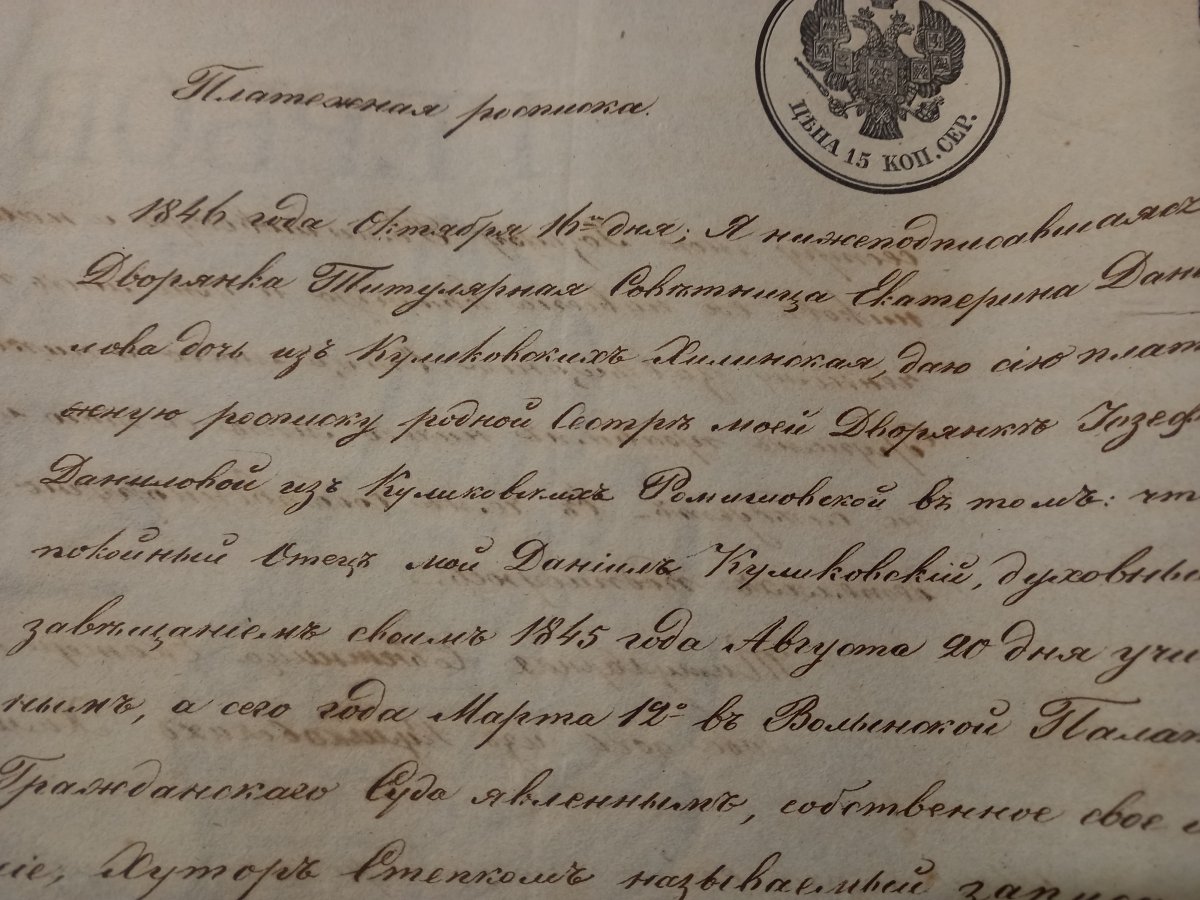 ЦѢНА 15 КОП. СЕР.
Платежная росписка.
1846 года Октября 16го дня; Я нижеподписавшаяся
Дворянка Титулярная Совѣтница Екатерина Дани
лова дочь изъ Куликовскихъ Хилинская, даю сію плат
ежную росписку родной Сестрѣ моей Дворянкѣ Іозеф
Даниловой изъ Куликовскихъ Ромишовской въ томъ: чт
покойный Отецъ мой Даніилъ Куликовскій, духовным
завѣщаніемъ своимъ 1845 года Августа 20 дня учи
нымъ, а сего года Марта 12о въ Волынской Палат
Гражданскаго Суда явленнымъ, собственное свое и
ніе, Хуторъ Степкомъ называемый запис